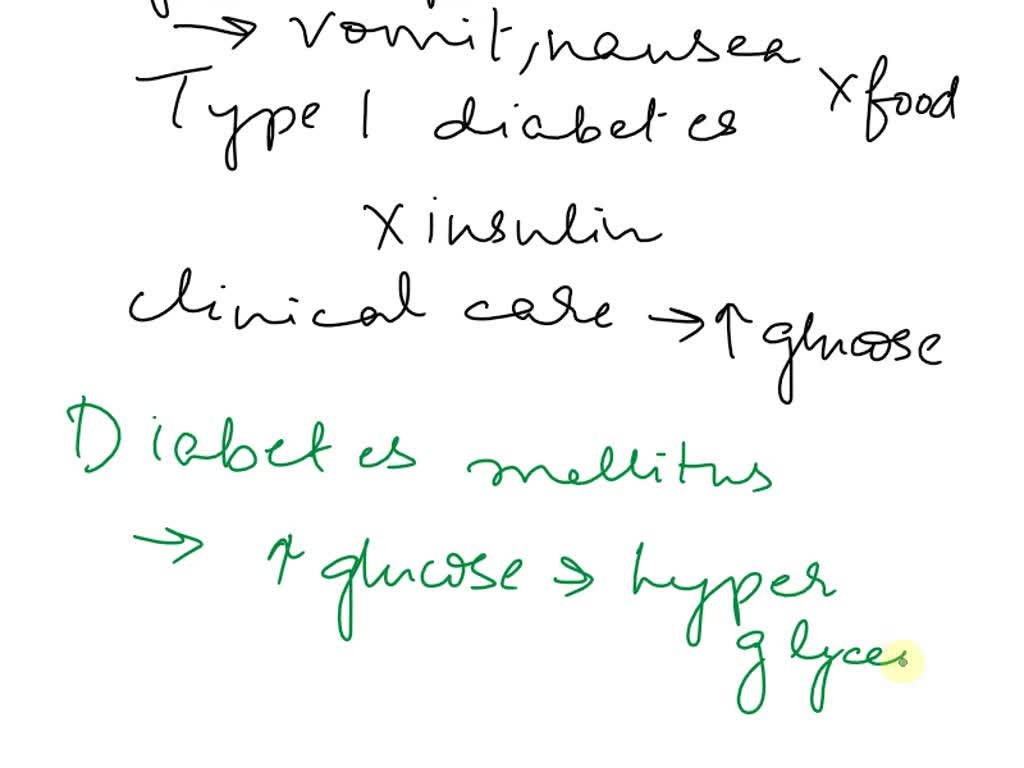 → vomit, nausea
Type 1 diabetes x food
x insulin
clinical care → ↑ glucose
Diabetes mellitus
→ ↑ glucose → hyper
glyce